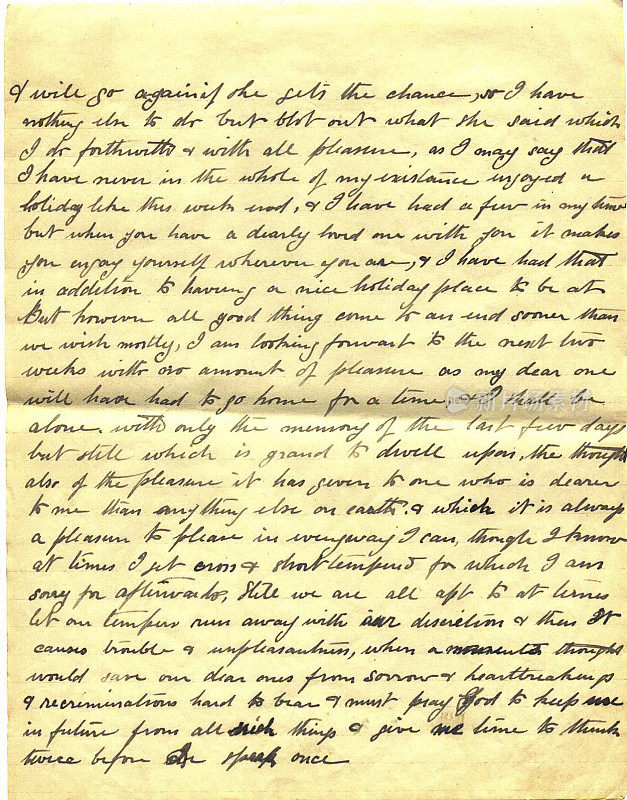 & will go again if she gets the chance, so I have
nothing else to do but blot out what she said which
I do forthwith & with all pleasure, as I may say that
I have never in the whole of my existance enjoyed a
holiday like this week end, & I have had a few in my time
but when you have a dearly loved one with you it makes
you enjoy yourself wherever you are, & I have had that
in addition to having a nice holiday place to be at
But however all good thing come to an end sooner than
we wish mostly, I am looking forward to the next two
weeks with no amount of pleasure as my dear one
will have had to go home for a time & I shall be
alone. with only the memory of the last few days
but still which is grand to dwell upon, the thought
also of the pleasure it has given to one who is dearer
to me than anything else on earth & which it is always
a pleasure to please in everyway I can, though I know
at times I get cross & short tempered for which I am
sorry for afterwards, Still we are all apt to at times
let our tempers run away with our discretion & thus it
causes trouble & unpleasantness, when a moments thought
would save our dear ones from sorrow & heartbreakings
& recriminations hard to bear & must pray God to keep me
in future from all such things & give me time to think
twice before speak once
新片场素材